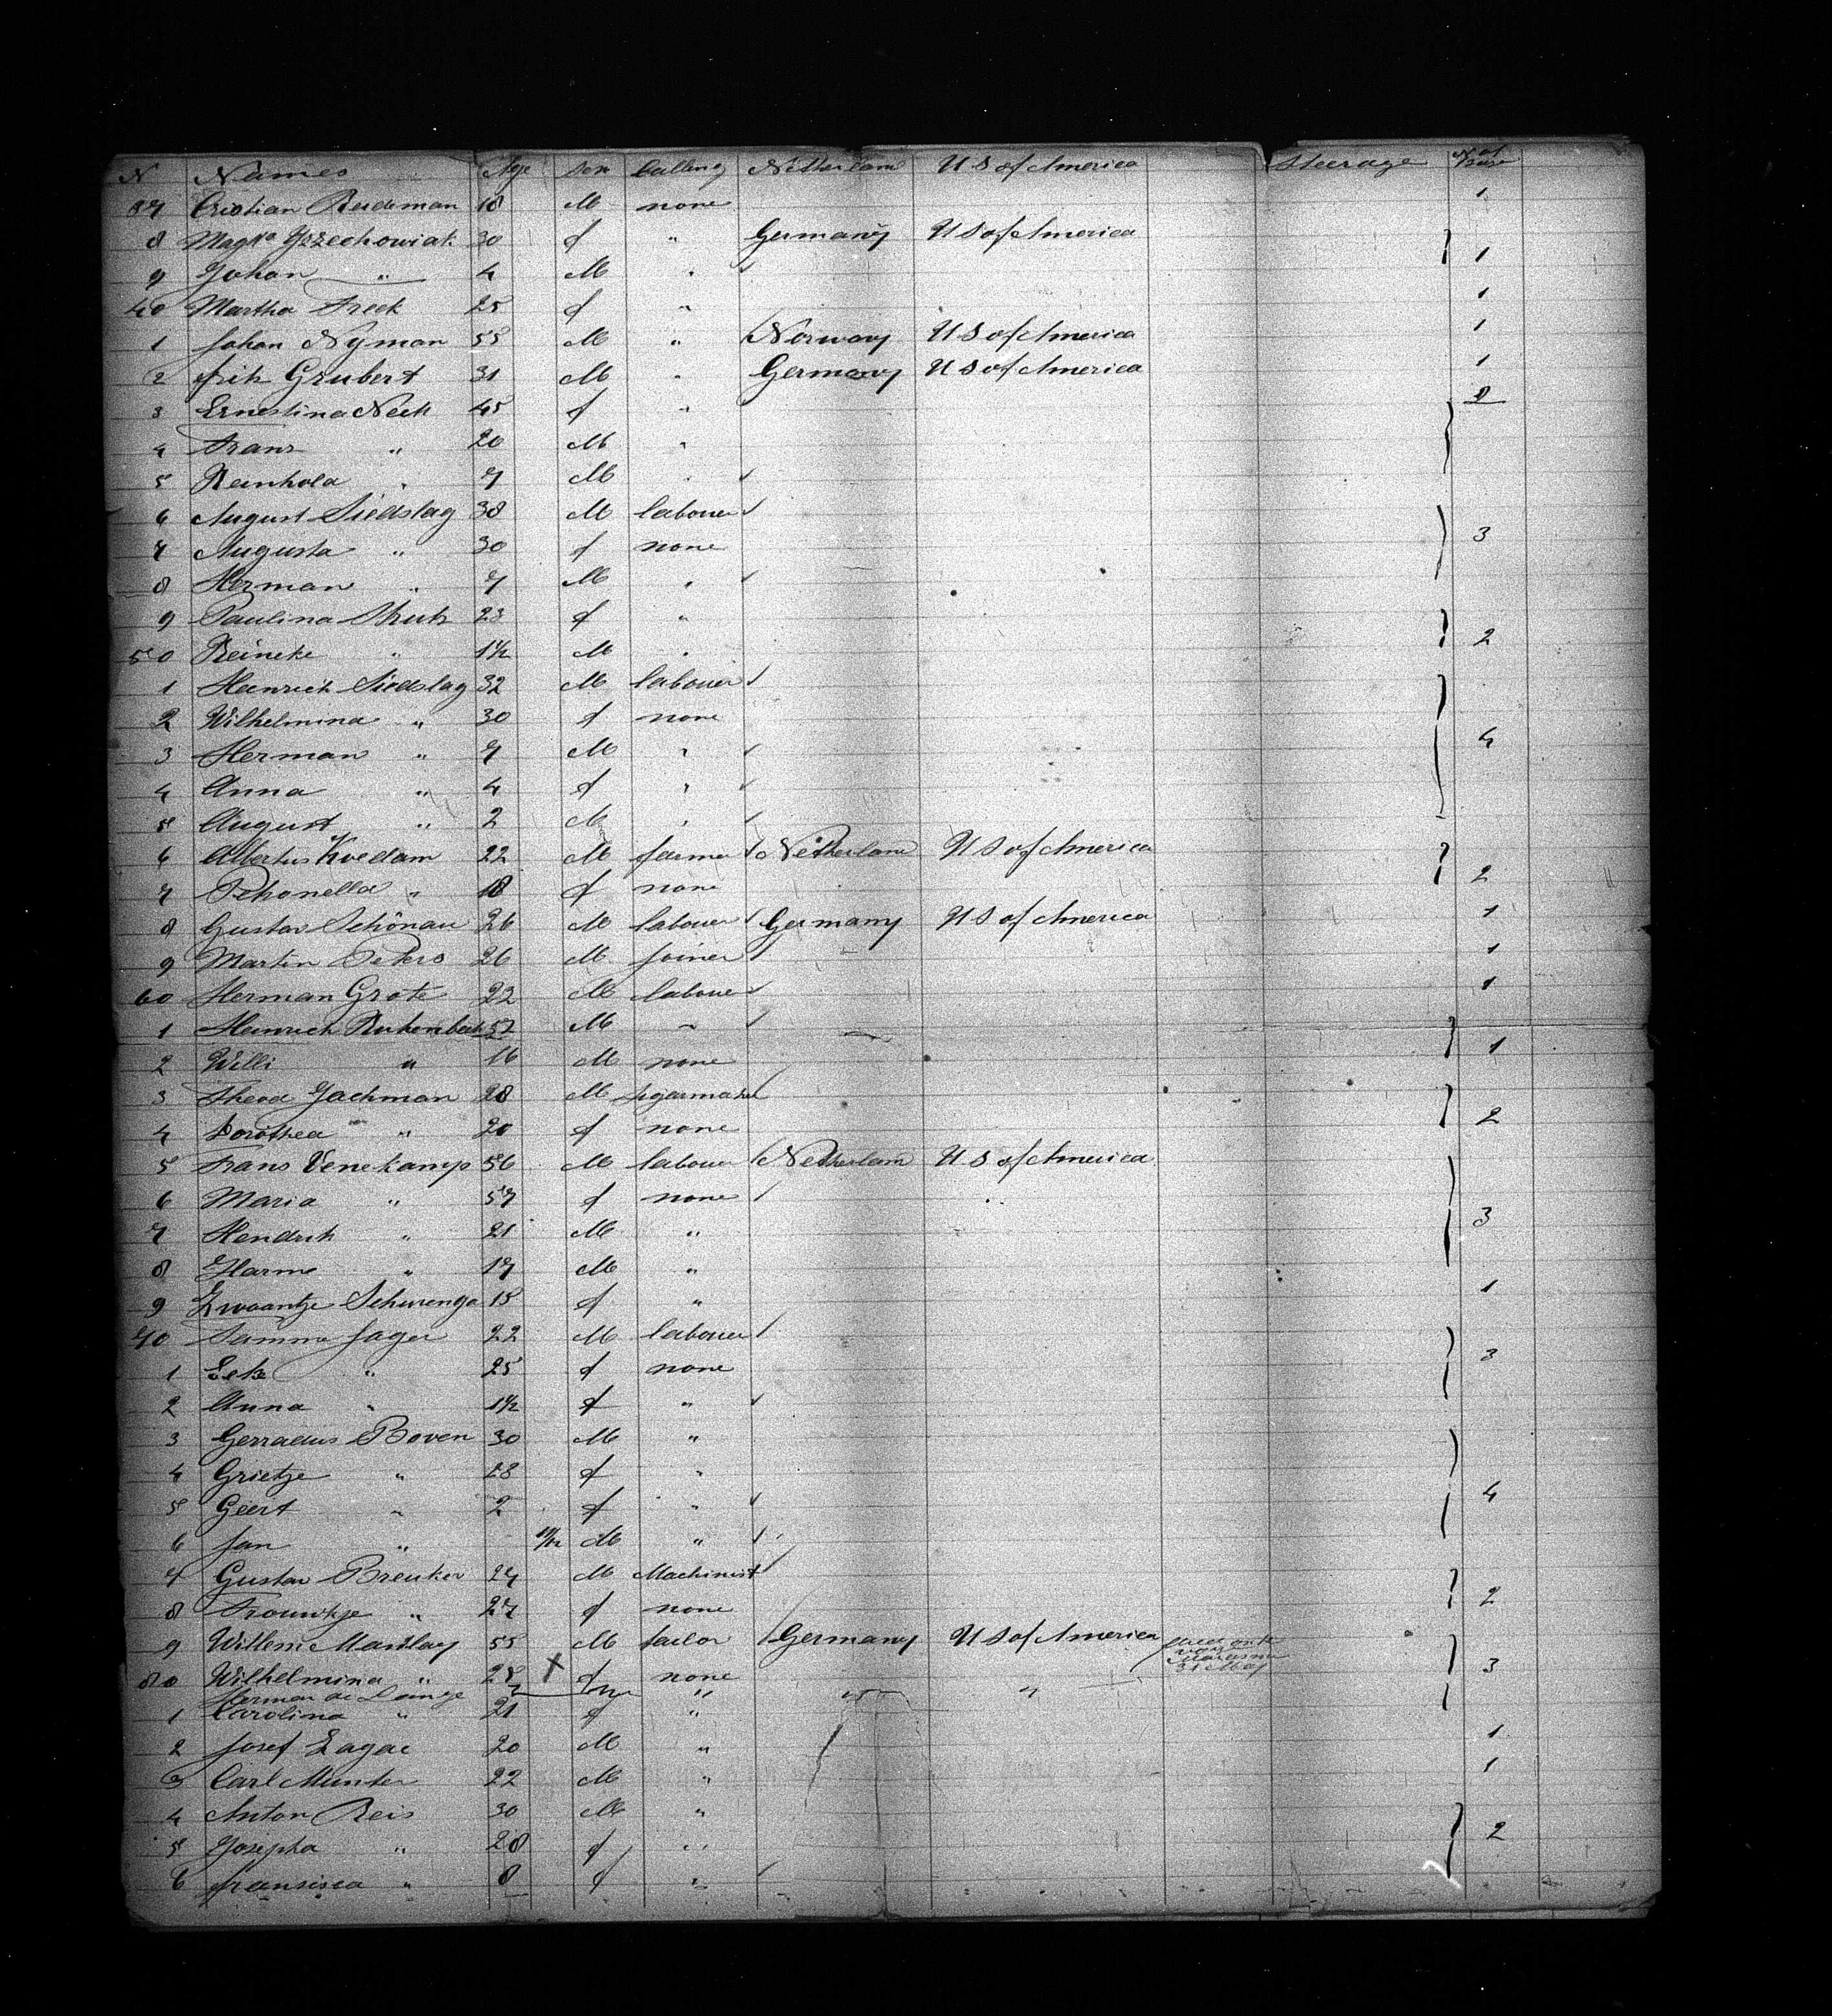 N Names Age Sex Calling Netherland U S of America Steerage
37 Cristian Rudeman 18 M none 1
8 Magta Grzechowiak 30 f " Germany U S of America
9 Johan " 4 M " 1
40 Martha Freek 25 f " 1
1 Johan Nyman 55 M " Norway U S of America 1
2 frits Grubert 31 M " Germany U S of America 1
3 Ernestina Neek 45 f " 2
4 Frans " 20 M "
5 Reinhola " 7 M "
6 August Siedslag 38 M labouer
7 Augusta " 30 f none 3
8 Herman " 7 M "
9 Paulina 23 f "
50 Reineke " 1 1/2 M " 2
1 Heinrich Siedslag 32 M labouer
2 Wilhelmina " 30 f none
3 Herman " 7 M " 4
4 Anna " 4 f "
5 August " 2 M "
6 Albertus Kvedam 22 M farmer Netherland U S of America
7 Petronella " 18 f none 2
8 Gustav Schönau 26 M labouer Germany U S of America 1
9 Martin Peters 26 M joiner 1
60 Herman Grote 22 M labouer 1
1 Heinrich Rukenbech 52 M "
2 Willi " 16 M none 1
3 Theod Jachman 28 M sigarmaker
4 Dorothea " 20 f none 2
5 Frans Venekamp 56 M labouer Netherland U S of America
6 Maria " 57 f none
7 Hendrik " 21 M " 3
8 Harme " 17 M "
9 Zwaantje Schurenga 15 f " 1
70 Samme Jager 22 M labouer
1 Eeke " 25 f none 3
2 Anna " 1 1/2 f "
3 Gerradus Boven 30 M "
4 Grietje " 28 f "
5 Geert " 2 f " 4
6 Jan " 10/12 M "
7 Gustav Breuker 27 M Machinist
8 Trouwtje " 27 f none 2
9 Willem Maslay 55 M tailor Germany U S of America
80 Wilhelmina " 28 X f none 3
Herman de Lange " " "
1 Carolina " 21 f "
2 Josef Lagac 20 M " 1
3 Carl Munter 22 M " 1
4 Anton Reis 30 M "
5 Josepha " 28 f " 2
6 fransisca " 8 f "